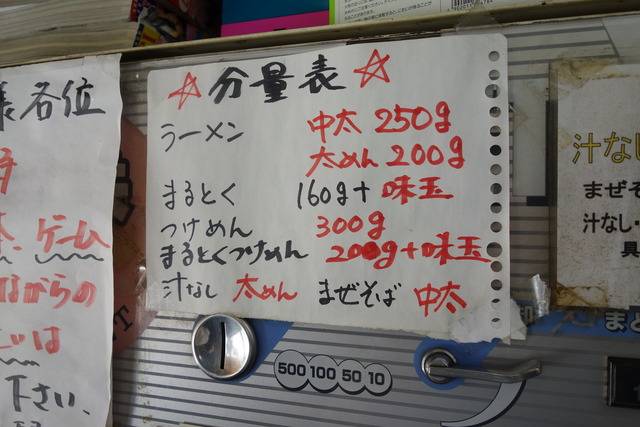 様各位
ゲーム
ながらの
は
下さい、
☆分量表☆
ラーメン 中太 250g
太めん 200g
まるとく 160g+味玉
つけめん 300g
まるとくつけめん 200g+味玉
汁なし 太めん まぜそば 中太
500 100 50 10
汁なし
まぜそ
汁なし・
具